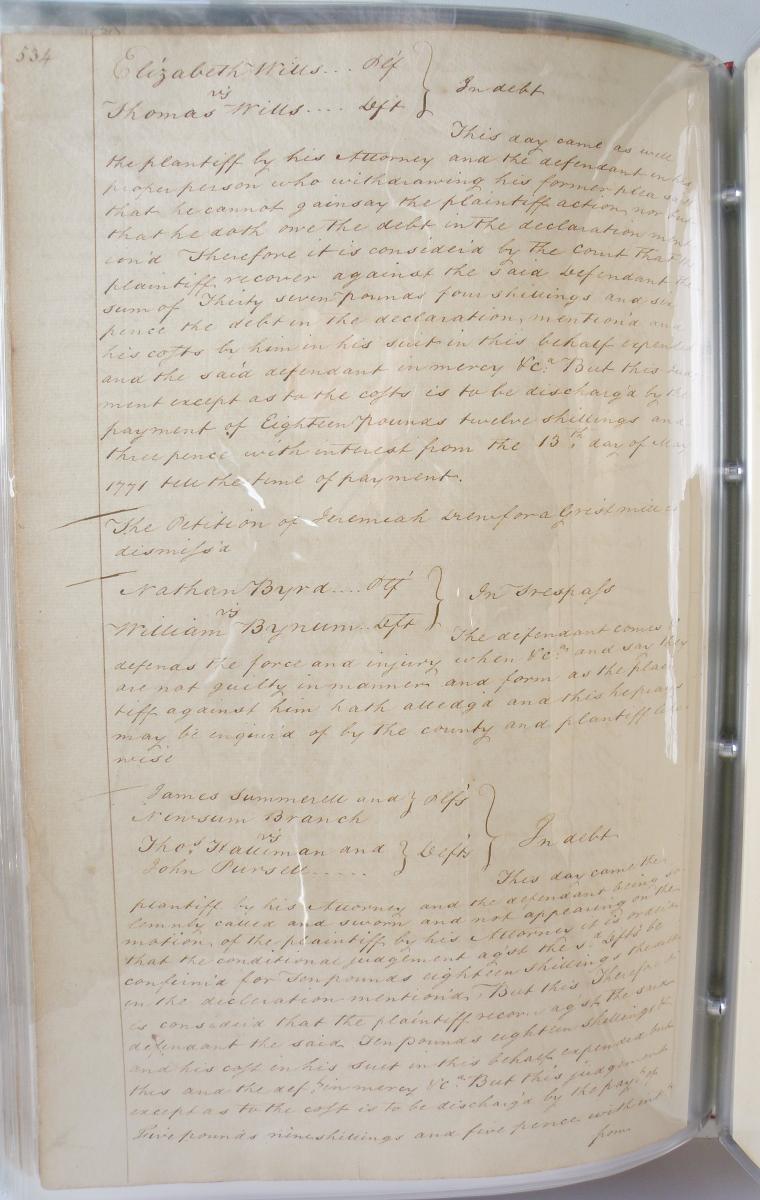 534
Elizabeth Wills... Plf
vs
Thomas Wills.... Deft
In debt
This day came as well
the plantiff by his Attorney and the defendant in his
proper person who withdrawing his former plea saith
that he cannot gainsay the plaintiff action nor but
that he doth owe the debt in the declaration ment
ion'd Therefore it is consider'd by the Court that the
plaintiff recover against the said Defendant the
sum of Thirty seven pounds four shillings and six
pence the debt in the declaration mention'd and
his costs by him in his suit in this behalf expended
and the said defendant in mercy &c.a But this Judg
ment except as to the costs is to be discharg'd by the
payment of Eighteen Pounds twelve shillings and
three pence with interest from the 13th day of May
1771 till the time of payment.
The Petition of Jeremiah Drew for a Grist mill is
dismiss'd
Nathan Byrd.... Plf
vs
William Bynum.. Deft
In Trespass
The defendant comes &
defends the force and injury when &c.a and say they
are not guilty in manner and form as the plain
tiff against him hath alledg'd and this he prays
may be inquir'd of by the county and plantiff like
wise
James Summerell and
Newsum Branch
Plfs
vs
Thos. Halliman and
John Pursell......
Defts
In debt
This day came the
plantiff by his Attorney and the defendant being so
lemnly called and sworn and not appearing on the
motion of the plaintiff by his Attorney it is order'd
that the conditional judgement agst the sd. Defts be
confirm'd for Ten pounds eighteen shillings the debt
in the decleration mention'd, But this Therefore it
is consider'd that the plaintiff recover agst the said
defendant the said Ten pounds eighteen shillings &
and his cost in his suit in this behalf expended but
this and the deft. in mercy &c.a But this judgement
except as to the cost is to be discharg'd by the paymt. of
Five pounds nine shillings and five pence with int.
from